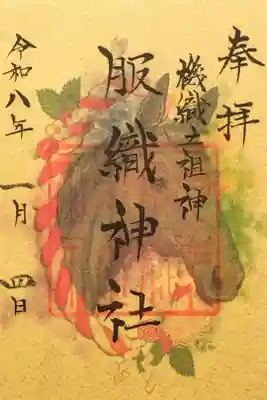 奉拝
機織之祖神
服織神社
令和八年
一月
四日